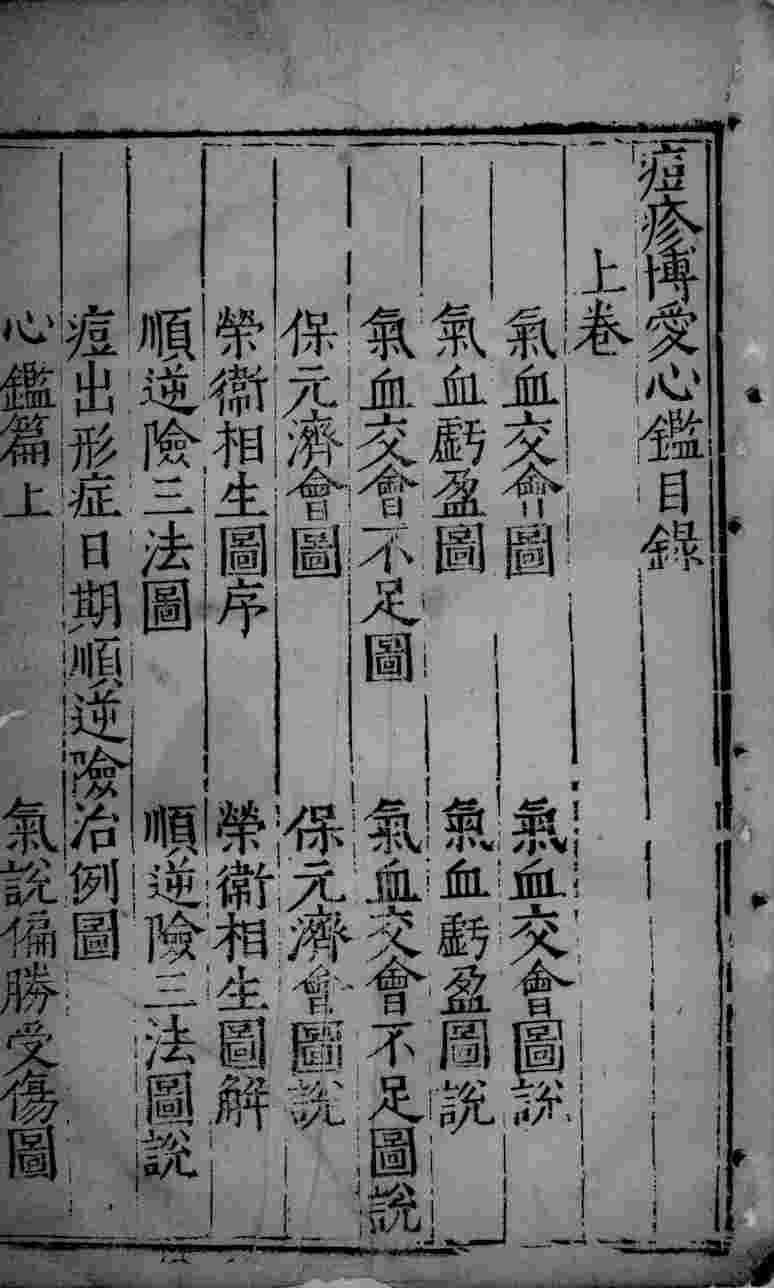 痘疹博愛心鑑目錄
上卷
氣血交會圖 氣血交會圖說
氣血虧盈圖 氣血虧盈圖說
氣血交會不足圖 氣血交會不足圖說
保元濟會圖 保元濟會圖說
榮衞相生圖序 榮衞相生圖解
順逆險三法圖 順逆險三法圖說
痘出形症日期順逆險治例圖
心鑑篇上 氣說偏勝受傷圖